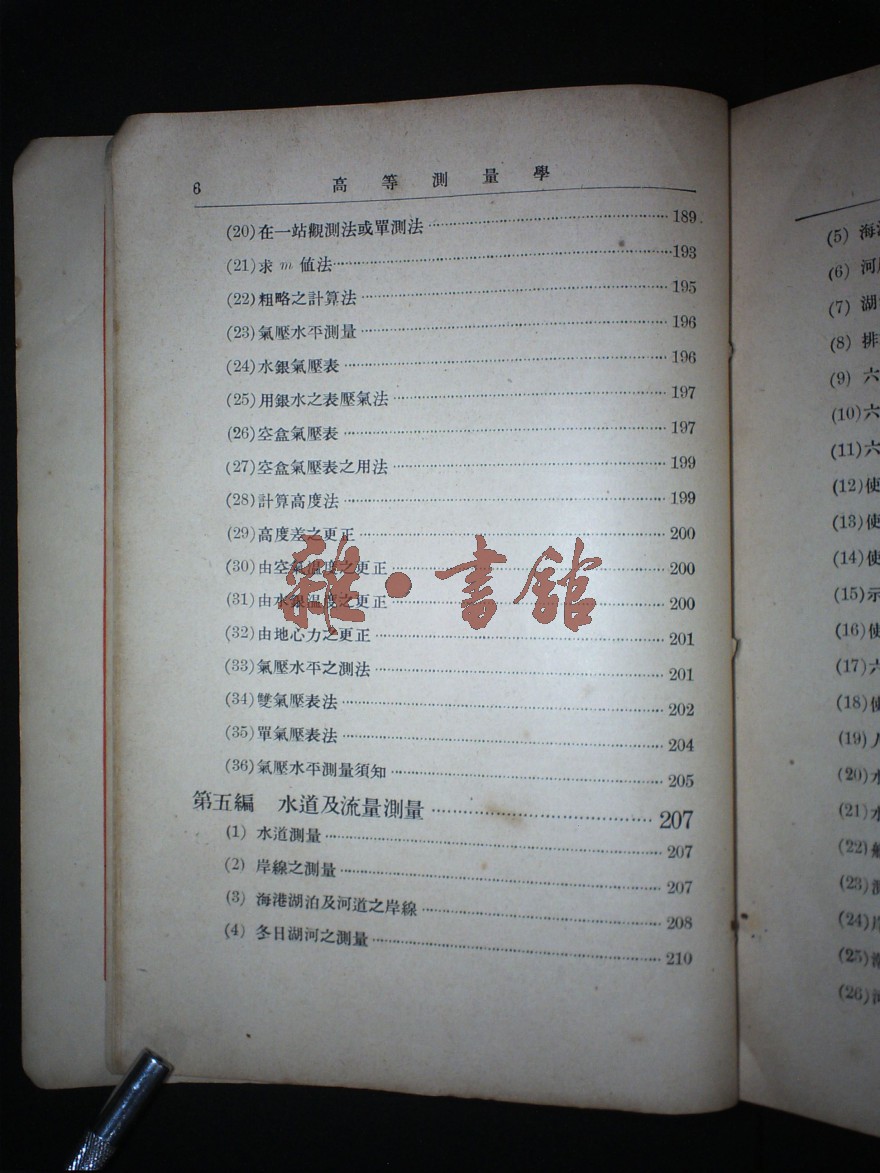 6 高等測量學
(20)在一站觀測法或單測法 189
(21)求 m 値法 193
(22)粗略之計算法 195
(23)氣壓水平測量 196
(24)水銀氣壓表 196
(25)用銀水之表壓氣法 197
(26)空盒氣壓表 197
(27)空盒氣壓表之用法 199
(28)計算高度法 199
(29)高度差之更正 200
(30)由空氣温度之更正 200
(31)由水銀温度之更正 200
(32)由地心力之更正 201
(33)氣壓水平之測法 201
(34)雙氣壓表法 202
(35)單氣壓表法 204
(36)氣壓水平測量須知 205
第五編 水道及流量測量 207
(1) 水道測量 207
(2) 岸線之測量 207
(3) 海港湖泊及河道之岸線 208
(4) 冬日湖河之測量 210
雜·書館
(5) 海
(6) 河
(7) 湖
(8) 排
(9) 六
(10)六
(11)六
(12)使
(13)使
(14)使
(15)示
(16)使
(17)六
(18)使
(19)人
(20)水
(21)水
(22)
(23)測
(24)岸
(25)潮
(26)河